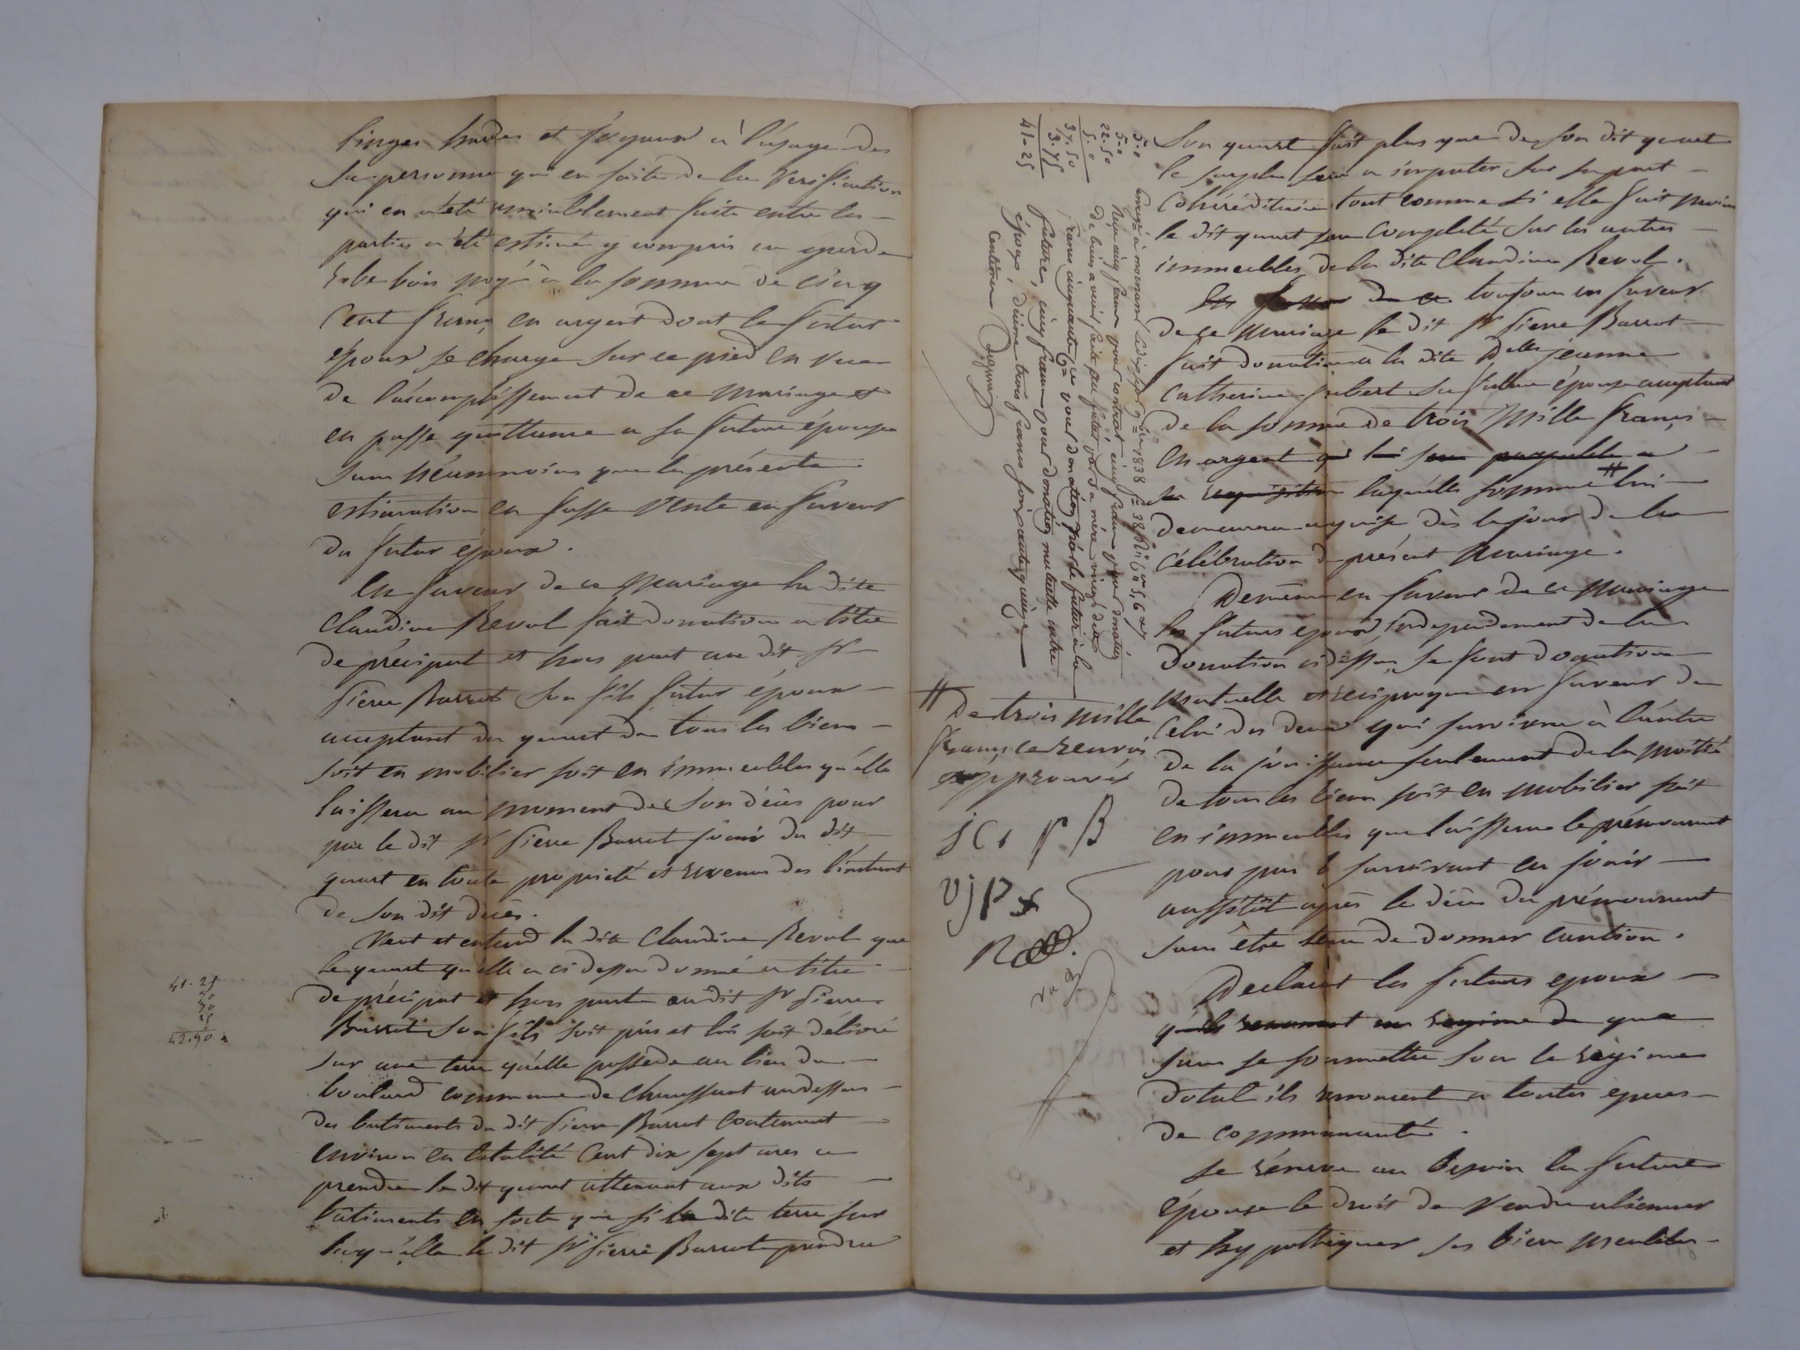 linges hardes et joyaux à l'usage de
sa personne qui en suite de la verification
qui en a été amiablement faite entre les
parties a été estimé y compris une garde
robe bois noyé à la somme de cinq
cent francs en argent dont le futur
époux se charge sur ce pied en vue
de l'accomplissement de ce mariage et
en passe quittance a sa future épouse
sans néanmoins que la présente
estimation en fasse vente en faveur
du futur époux.
En faveur de ce mariage la dite
Claudine Revol fait donation a titre
de préciput et hors part au dit Sr
Pierre Barrot son fils futur époux
acceptant du quart de tous les biens
soit en mobilier soit en immeubles qu'elle
laissera au moment de son décès pour
par le dit Sr Pierre Barrot jouir du dit
quart en toute propriété et revenu dès l'instant
de son dit décès.
Veut et entend la dite Claudine Revol que
le quart qu'elle a ci dessus donné a titre
de préciput et hors part au dit Sr Pierre
Barrot son fils soit pris et lui soit délivré
sur une terre qu'elle possede au lieu du
boulard commune de Chaussant au dessus
des batiments du dit Pierre Barrot contenant
environ en totalité Cent dix sept ares a
prendre le dit quart attenant aux dits
batiments en sorte que si la dite terre sur
laquelle le dit Sr Pierre Barrot prendra
41.25
42.90
son quart fait plus que de son dit quart
le surplus sera a imputer sur sa part
cohéréditaire tout comme si elle fait moins
le dit quart sera completé sur les autres
immeubles de la dite Claudine Revol.
de ce toujours en faveur
de ce mariage le dit Sr Pierre Barrot
fait donation à la dite Delle jeanne
Catherine jubert sa future épouse acceptant
de la somme de trois mille francs
en argent qui lui sera payable a
sa requisition laquelle somme # lui
demeurera acquise dès le jour de la
célébration du présent mariage.
De même en faveur de ce mariage
les futurs epoux, independament de la
donation ci dessus, se font donation
mutuelle et réciproque en faveur de
celui des deux qui survivra à l'autre
de la jouissance seulement de la moitié
de tous les biens soit en mobilier soit
en immeubles que laissera le prémourant
pour par le survivant en jouir
aussitôt après le décès du prémourant
sans être tenu de donner caution.
Declarent les futurs epoux
qu'ils renoncent au regime de que
sans se soumettre sous le regime
dotal ils renoncent a toutes epeces
de communauté.
Se réserve au besoin la future
épouse le droit de vendre aliéner
et hypothéquer ses biens meubles
5.0
5.0
22.50
5.0
37.50
3.75
41.25
Enregistré à mornant le 9 bre 1838 fo 38 5, 6 et 7
Reçu cinq francs pour contrat cinq francs pour donation
de biens a venir faite au futur par sa mère vingt deux
francs cinquante ces pour donation par le futur à la
future, cinq francs pour donation mutuelle entre
époux, dixième trois francs soixante quinze
centimes
# De trois mille
francs ce renvois
approuvés
j C j P B
V j P
R